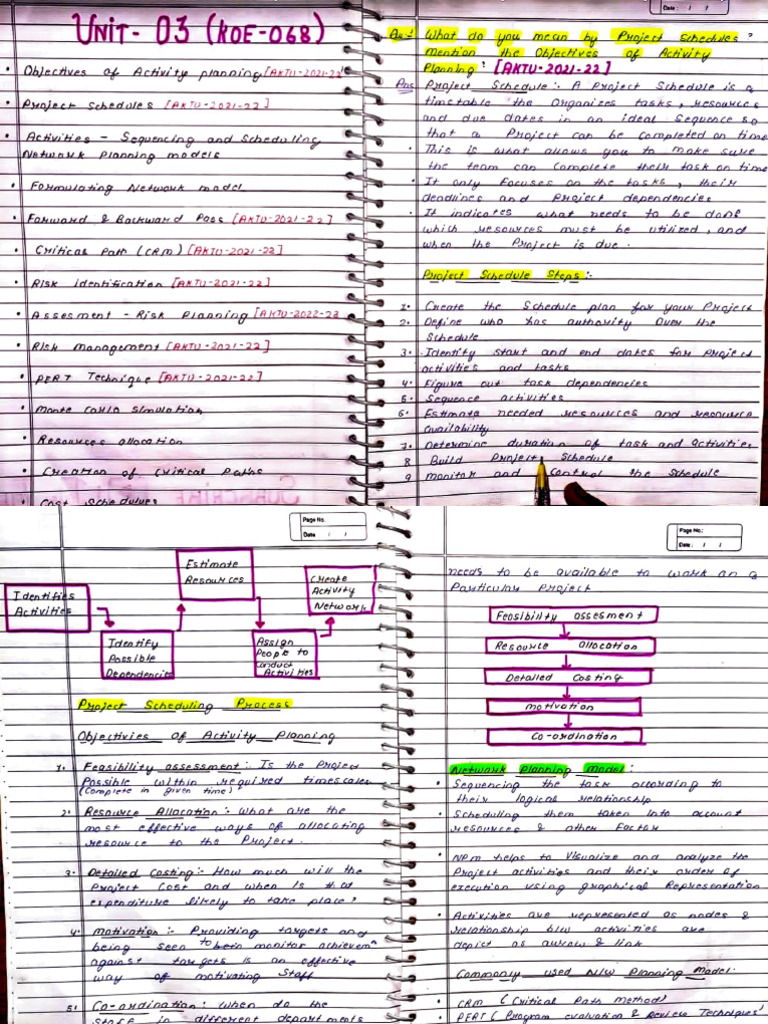 UNIT- 03 (KOE-068)
• Objectives of Activity planning [AKTU-2021-22
• Project schedules [AKTU-2021-22]
• Activities - Sequencing and Scheduling
Network Planning models
• Formulating Network model
• Forward & Backward Pass [AKTU-2021-22]
• Critical Path (CRM) [AKTU-2021-22]
• Risk Identification [AKTU-2021-22]
• Assesment - Risk Planning [AKTU-2022-23
• Risk Management [AKTU-2021-22]
• PERT Technique [AKTU-2021-22]
• Monte Carlo Simulation
• Resources allocation
• Creation of Critical Paths
• Cost Schedules
Date : / /
Qu:- What do you mean by Project Schedules?
Mention the Objectives of Activity
Planning: [AKTU-2021-22]
Ans Project Schedule:- A Project Schedule is a
timetable the Organizes tasks, resources
and due dates in an ideal Sequence so
that a Project can be completed on time
• This is what allows you to make sure
the team can complete their task on time
• It only focuses on the tasks, their
deadlines and Project dependencies
• It indicates what needs to be done
which resources must be utilized, and
when the Project is due.
Project Schedule Steps:-
1. Create the Schedule plan for your Project
2. Define who has authority Over the
Schedule
3. Identify start and end dates for Project
activities and tasks
4. Figure out task dependencies
5. Sequence activities
6. Estimate needed resources and resource
availability
7. Determine duration of task and activities
8 Build Project Schedule
9 monitor and Control the Schedule
Page No.
Date / /
Identifies
Activities
Identify
Possible
Dependencies
Estimate
Resources
Assign
People to
Conduct
Activities
Create
Activity
Network
Project Scheduling Process
Objectivies of Activity Planning
1. Feasibility assessment: Is the Project
Possible within required timescales
(Complete in given time)
2. Resource Allocation:- What are the
most effective ways of allocating
resource to the Project.
3. Detailed Costing:- How much will the
Project Cost and when Is that
expenditure likely to take place?
4. Motivation:- Providing targets and
being seen to bein monitor achievem
against targets is an effective
way of motivating Staff
5. Co-ordination: when do the
Staff in different departments
Page No.:
Date: / /
needs to be available to work on a
Particular Project
Feasibility assesment
Resource allocation
Detailed Costing
motivation
Co-ordination
Network Planning Model:
• Sequencing the task according to
their logical relationship
• Scheduling them taken Into account
resources & other Factor
• NPM helps to Visualize and analyze the
Project activities and their order of
execution using graphical Representation
• Activities are represented as nodes &
relationship b/w activities are
depict as arrow & link
Commonly used N/w Planning Model.
• CRM (Critical Path method)
• PERT (Program evaluation & Review Techniques)